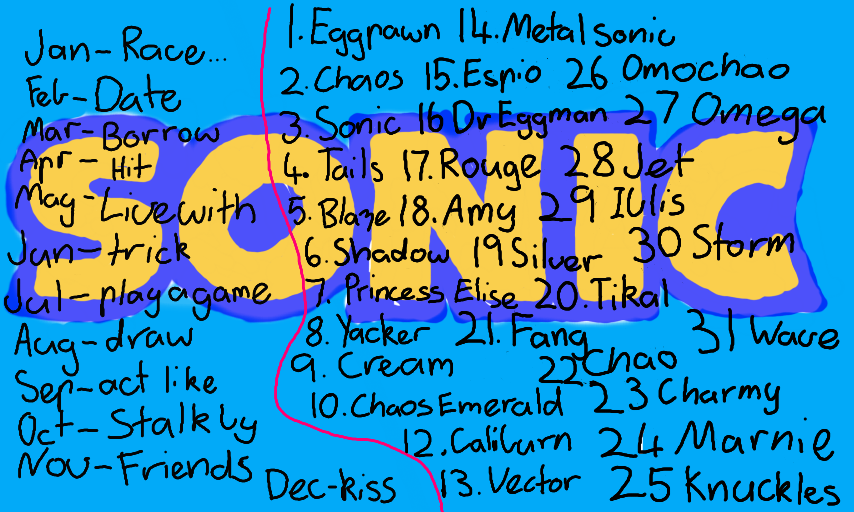 Jan-Race...
Feb-Date
Mar-Borrow
Apr-Hit
May-Livewith
Jun-trick
Jul-playagame
Aug-draw
Sep-act like
Oct-Stalkby
Nov-Friends
Dec-kiss
1.Eggpawn
2.Chaos
3.Sonic
4.Tails
5.Blaze
6.Shadow
7.Princess Elise
8.Yacker
9.Cream
10.ChaosEmerald
12.Caliburn
13.Vector
14.Metalsonic
15.Espio
16 Dr Eggman
17.Rouge
18.Amy
19Silver
20.Tikal
21.Fang
22Chao
23Charmy
24 Marnie
25 Knuckles
26 Omochao
27 Omega
28Jet
29 IUlis
30 Storm
31 Wave
SONIC